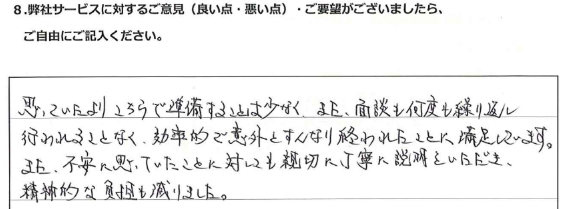 8.弊社サービスに対するご意見（良い点・悪い点）・ご要望がございましたら、
ご自由にご記入ください。
思っていたよりこちらで準備することは少なく、また、面談も何度も繰り返し
行われることなく、効率的で意外とすんなり終われたことに満足しています。
また、不安に思っていたことに対しても親切に丁寧に説明をいただき、
精神的な負担も減りました。